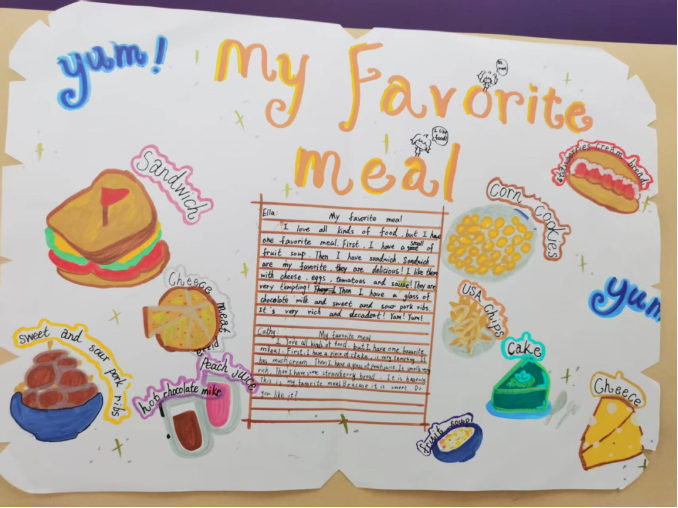 yum!
My Favorite
meal
I like
food!
Sandwich
Corn Cookies
cream bread
Ella: My favorite meal
I love all kinds of food, but I have
one favorite meal. First, I have a small of
fruit soup. Then I have sandwich. Sandwich
are my favorite. they are delicious! I like them
with cheese, eggs, tomatoes and sauce! They are
very tempting! Then I have a glass of
chocolate milk and sweet and sour pork ribs.
It's very rich and decadent! Yum! Yum!
Cathy: My favorite meal
I love all kinds of food, but I have one favorite
meal. First, I have a piece of cake, it is very tempting. It
has much cream. Then I have a glass of
rich. Then I have some strawberry bread. It is heavenly
This is my favorite meal Because it is sweet. Do
you like it?
Cheece meat
USA Chips
yum
sweet and sour pork ribs
Peach juice
hob chocolate mike
Cake
Cheece
fruits soup